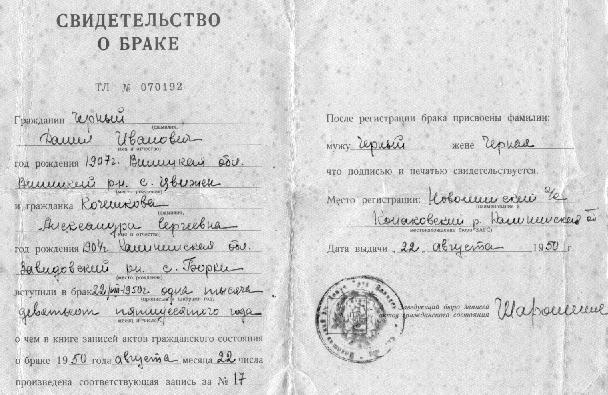 СВИДЕТЕЛЬСТВО
О БРАКЕ
ТЛ № 070192
Гражданин Черный
(фамилия)
Иванович
имя и отчество
год рождения 1907г. Виницкая обл.
Виницкий рн. с.
(место рождения)
и гражданка Кочешкова
(фамилия)
Александра Сергеевна
имя и отчество
год рождения 1904г. Калининской обл.
Завидовский рн. с. Борки
(место рождения)
вступили в брак 22/VIII-1950г. одна тысяча
(прописью и цифрами год,
девятьсот пятидесятого года
месяц и число)
о чем в книге записей актов гражданского состояния
о браке 1950 года августа месяца 22 числа
произведена соответствующая запись за № 17
После регистрации брака присвоены фамилии:
мужу Черный жене Черная
что подписью и печатью свидетельствуется.
Место регистрации:
(наименование и
Конаковский р. Калининской
местонахождение бюро ЗАГС)
Дата выдачи „22„ августа 1950 г
Заведующий бюро записи
актов гражданского состояния